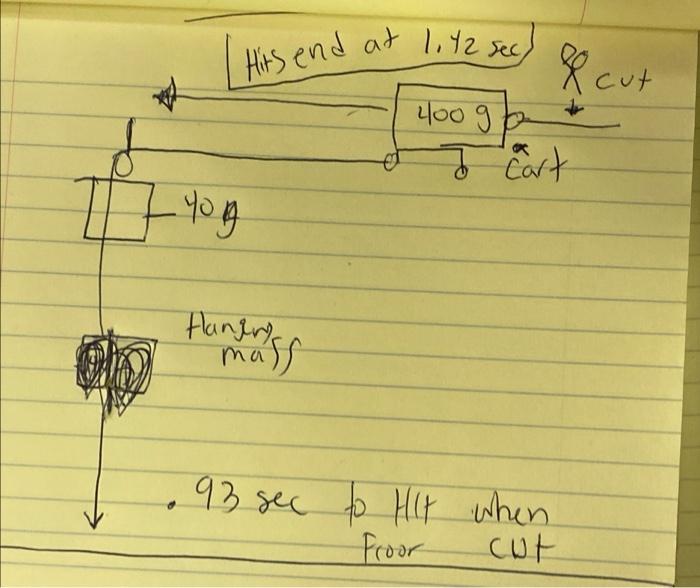 Hits end at 1.42 sec
cut
400 g
Cart
40 g
Hanging
mass
.93 sec to Hit when
Floor cut